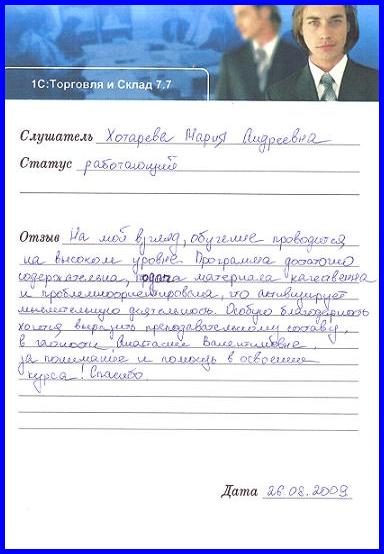 1С:Торговля и Склад 7.7
Слушатель Хотарева Мария Андреевна
Статус работающий
Отзыв На мой взгляд, обучение проводится
на высоком уровне. Программа достаточно
содержательна, подача материала качественна
и проблемноориентирована, что активизирует
мыслительную деятельность. Особую благодарность
хочется выразить преподавательскому составу,
в частности, Анастасии Валентиновне,
за понимание и помощь в освоении
курса! Спасибо.
Дата 26.08.2009